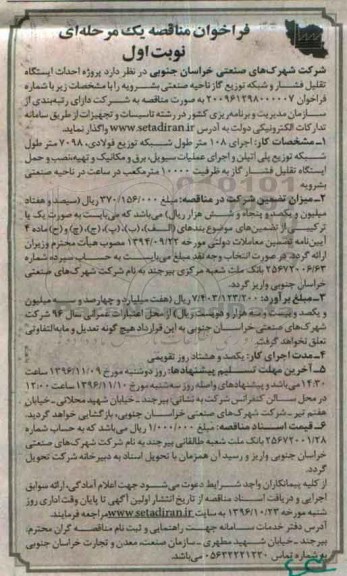 فراخوان مناقصه یک مرحله‌ای
نوبت اول
شرکت شهرک‌های صنعتی خراسان جنوبی در نظر دارد پروژه احداث ایستگاه
تقلیل فشار و شبکه توزیع گاز ناحیه صنعتی بشرویه را با مشخصات زیر با شماره
فراخوان ۲۰۰۹۶۱۳۹۸۰۰۰۰۰۷ به صورت مناقصه به شرکت دارای رتبه‌بندی از
سازمان مدیریت و برنامه‌ریزی کشور در رشته تاسیسات و تجهیزات از طریق سامانه
تدارکات الکترونیکی دولت به آدرس www.setadiran.ir واگذار نماید.
۱ـ مشخصات کار: اجرای ۱۰۸ متر طول شبکه توزیع فولادی، ۷۰۹۸ متر طول
شبکه توزیع پلی اتیلن و اجرای عملیات سیویل، برق و مکانیک و تهیه، نصب و حمل
ایستگاه تقلیل فشار گاز به ظرفیت ۱۰۰۰۰ مترمکعب در ساعت در ناحیه صنعتی
بشرویه
۲ـ میزان تضمین شرکت در مناقصه: مبلغ ۳۷۰/۱۵۶/۰۰۰ ریال (سیصد و هفتاد
میلیون و یکصد و پنجاه و شش هزار ریال) می‌باشد که می‌بایست به صورت یک یا
ترکیبی از تضمین‌های موضوع بندهای (الف)، (ب)، (پ)، (ج)، (چ) و (ح) ماده ۴
آیین‌نامه تضمین معاملات دولتی مورخه ۱۳۹۴/۰۹/۲۲ مصوب هیأت محترم وزیران
ارائه گردد. در صورت انتخاب وجه نقد مبلغ می‌بایست به حساب سپرده شماره
۲۵۶۷۲۰۰۶/۶۳ بانک ملت شعبه مرکزی بیرجند به نام شرکت شهرک‌های صنعتی
خراسان جنوبی واریز گردد.
۳ـ مبلغ برآورد: ۷/۴۰۳/۱۲۳/۲۰۰ ریال (هفت میلیارد و چهارصد و سه میلیون
و یکصد و بیست و سه هزار و دویست ریال) از محل اعتبارات عمرانی سال ۹۶ شرکت
شهرک‌های صنعتی خراسان جنوبی به این قرارداد هیچ گونه تعدیل و مابه‌التفاوتی
تعلق نخواهد گرفت.
۴ـ مدت اجرای کار: یکصد و هشتاد روز تقویمی
۵ـ آخرین مهلت تسلیم پیشنهادها: روز دوشنبه مورخ ۱۳۹۶/۱۱/۰۹ ساعت
۱۴:۳۰ می‌باشد و پیشنهادهای واصله روز سه‌شنبه مورخ ۱۳۹۶/۱۱/۱۰ ساعت ۱۲:۰۰
در محل سالن کنفرانس شرکت به نشانی: بیرجند ـ خیابان شهید محلاتی ـ خیابان
هفتم تیر ـ شرکت شهرک‌های صنعتی خراسان جنوبی، بازگشایی خواهد گردید.
۶ـ قیمت اسناد مناقصه: مبلغ ۱/۰۰۰/۰۰۰ ریال می‌باشد که به حساب شماره
۲۵۶۷۲۰۰۱/۲۸ بانک ملت شعبه طالقانی بیرجند به نام شرکت شهرک‌های صنعتی
خراسان جنوبی واریز و رسید آن همزمان با تحویل اسناد به دبیرخانه شرکت تحویل
گردد.
از کلیه پیمانکاران واجد شرایط دعوت می‌شود جهت اعلام آمادگی، ارائه سوابق
اجرایی و دریافت اسناد مناقصه از تاریخ انتشار اولین آگهی تا پایان وقت اداری روز
شنبه مورخه ۱۳۹۶/۱۰/۲۳ به سایت www.setadiran.ir مراجعه فرمایند.
آدرس دفتر خدمات سامانه جهت راهنمایی و ثبت نام مناقصه گران محترم:
بیرجند ـ خیابان شهید مطهری ـ سازمان صنعت، معدن و تجارت خراسان جنوبی
به شماره تماس ۰۵۶۳۲۲۲۱۲۲۰ می‌باشد.